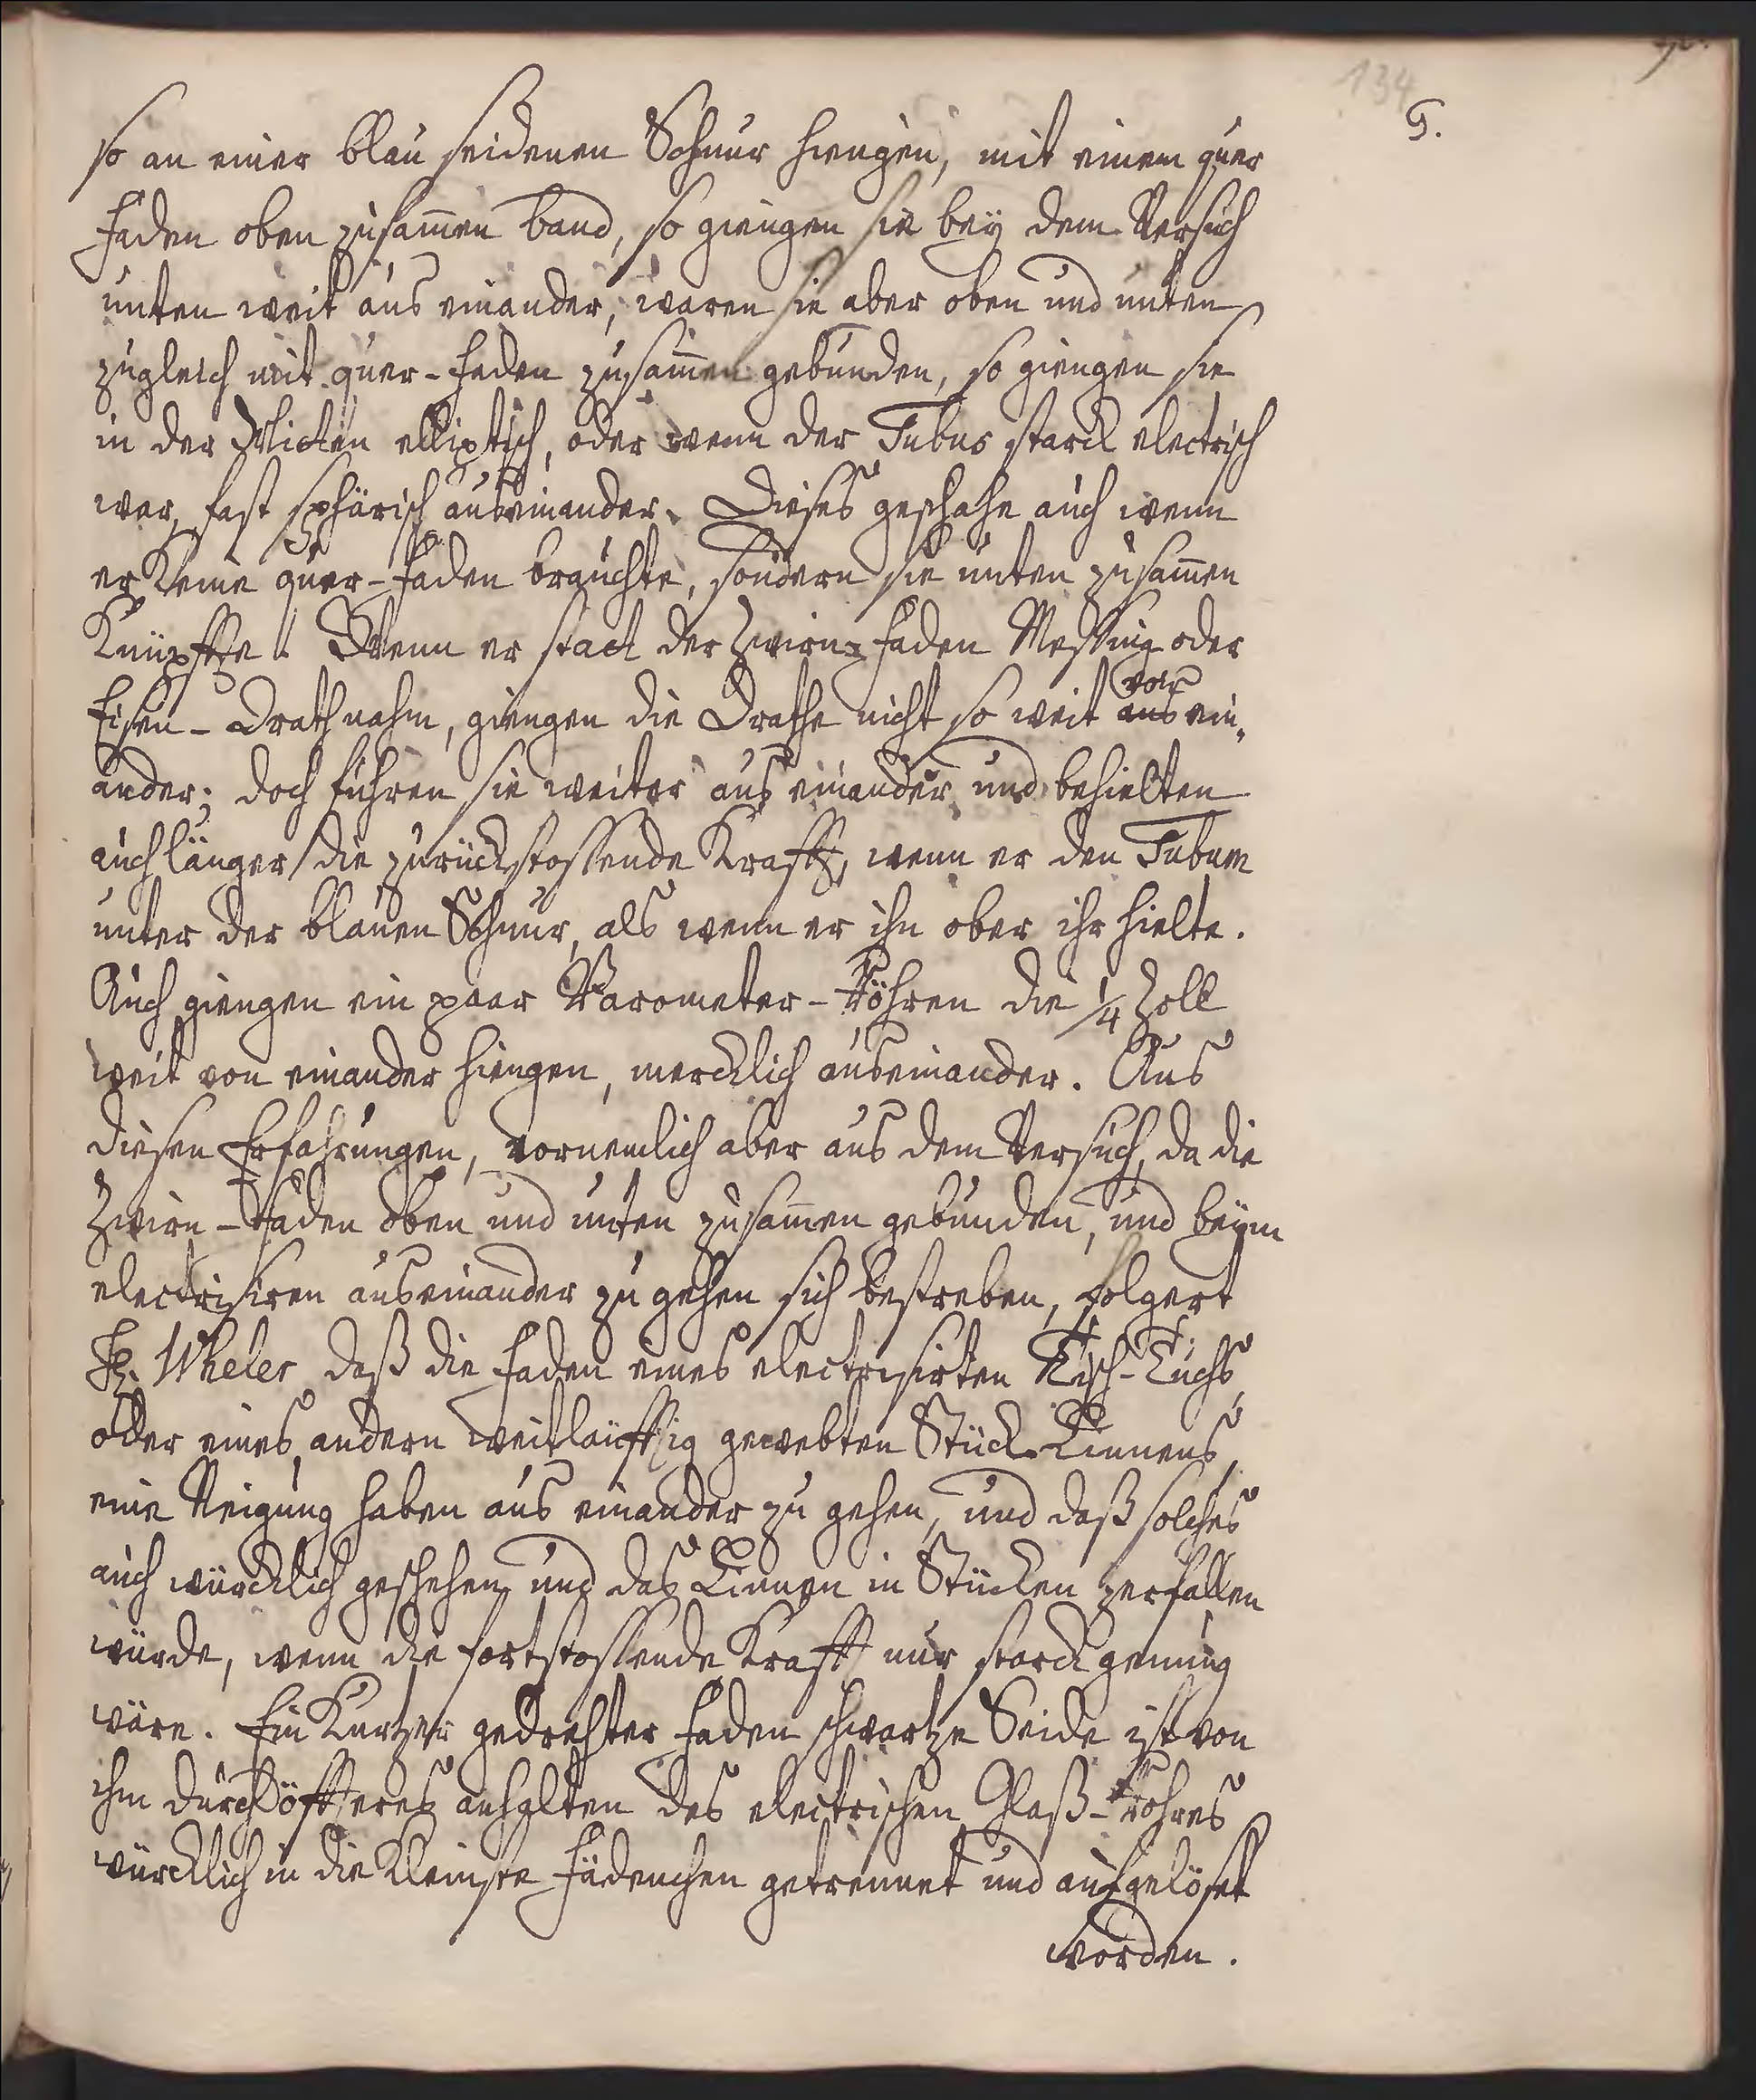 134
G.
so an einer blau seidenen Schnur hiengen, mit einem quer
Faden oben zusam̄en band, so giengen sie bey dem Versuch
unten weit aus einander, waren sie aber oben und unten
zugleich mit quer-Faden zusam̄en gebunden, so giengen sie
in der Mitten elliptisch, oder wenn der Tubus starck electrisch
war, fast sphärisch auseinander. Dieses geschahe auch wenn
er keine quer-Faden brauchte, sondern sie unten zusam̄en
knüpffte. Wenn er statt der Zwirn-Faden Messing oder
von
Eisen-Drath nahm, giengen die Drathe nicht so weit aus ein-
ander; doch fuhren sie weiter aus einander und behielten
auch länger die zurückstossende Krafft, wenn er den Tubum
unter der blauen Schnur, als wenn er ihn ober ihr hielte.
Auch giengen ein paar Barometer-Röhren die 1/4 Zoll
weit von einander hiengen, mercklich auseinander. Aus
diesen Erfahrungen, vornemlich aber aus dem Versuch, da die
Zwirn-Fäden oben und unten zusam̄en gebunden, und beym
electrisiren auseinander zu gehen sich bestreben, folgert
H. Wheler daß die Faden eines electrisirten Tisch-Tuchs,
oder eines andern weitläuffig gewebten Stück Linnens,
eine Neigung haben aus einander zu gehen, und daß solches
auch würcklich geschehen, und das Linnen in Stücken zerfallen
würde, wenn die fortstossende Krafft nur starck genung
wäre. Ein kurtzer gedrehter Faden schwartze Seide ist von
ihm durch öffteres anhalten des electrischen Glaß-Rohres
würcklich in die kleinste Fädenchen getrennet und aufgelöset
worden.